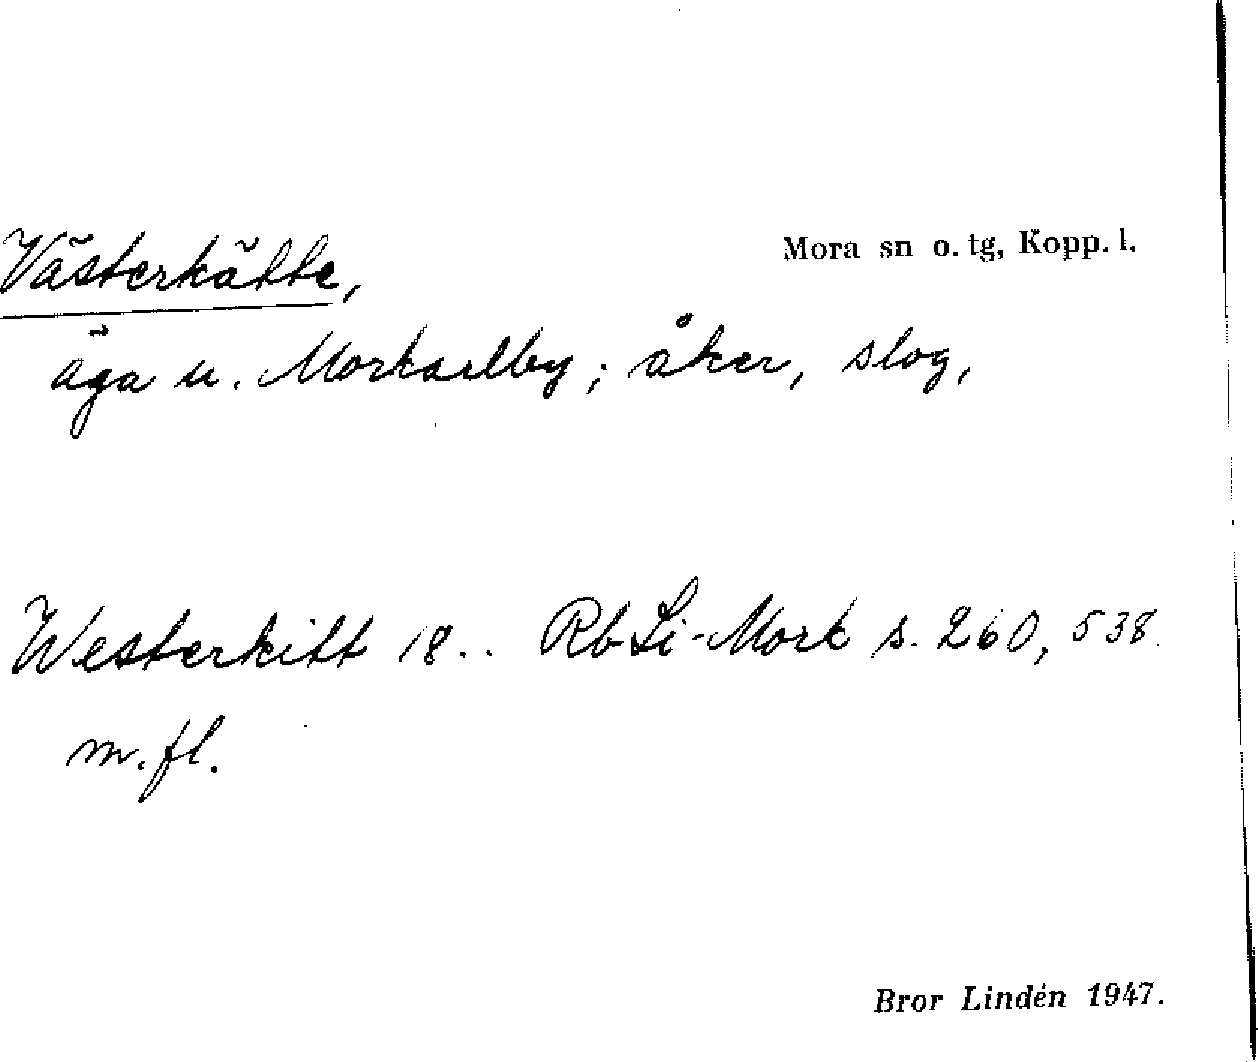 Västerkätte,
Mora sn o. tg, Kopp. l.
äga u. Morkarlby; åker, slog,
Westerkitt 18.. RbLi-Mork s. 260, 538.
m. fl.
Bror Lindén 1947.